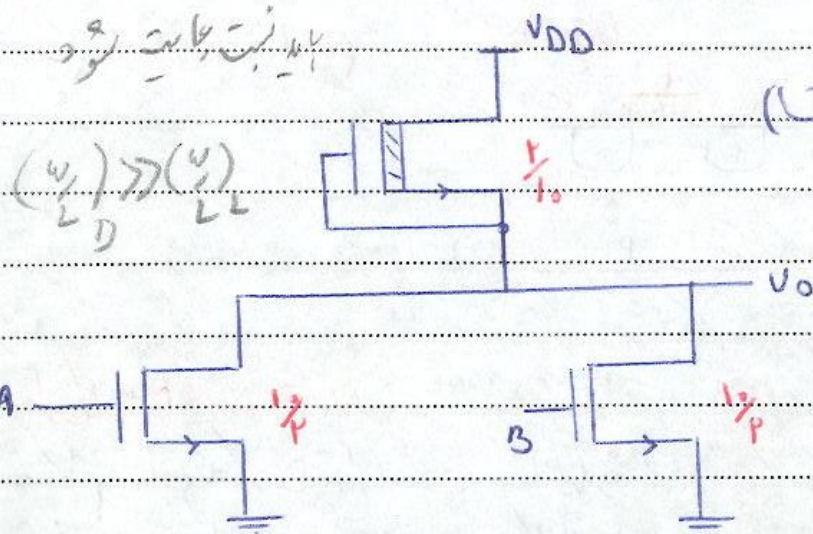 باید نسبت رعایت شود
VDD
(W/L)D >> (W/L)L
۲/۱۰
Vo
A
۱۰/۲
B
۱۰/۲